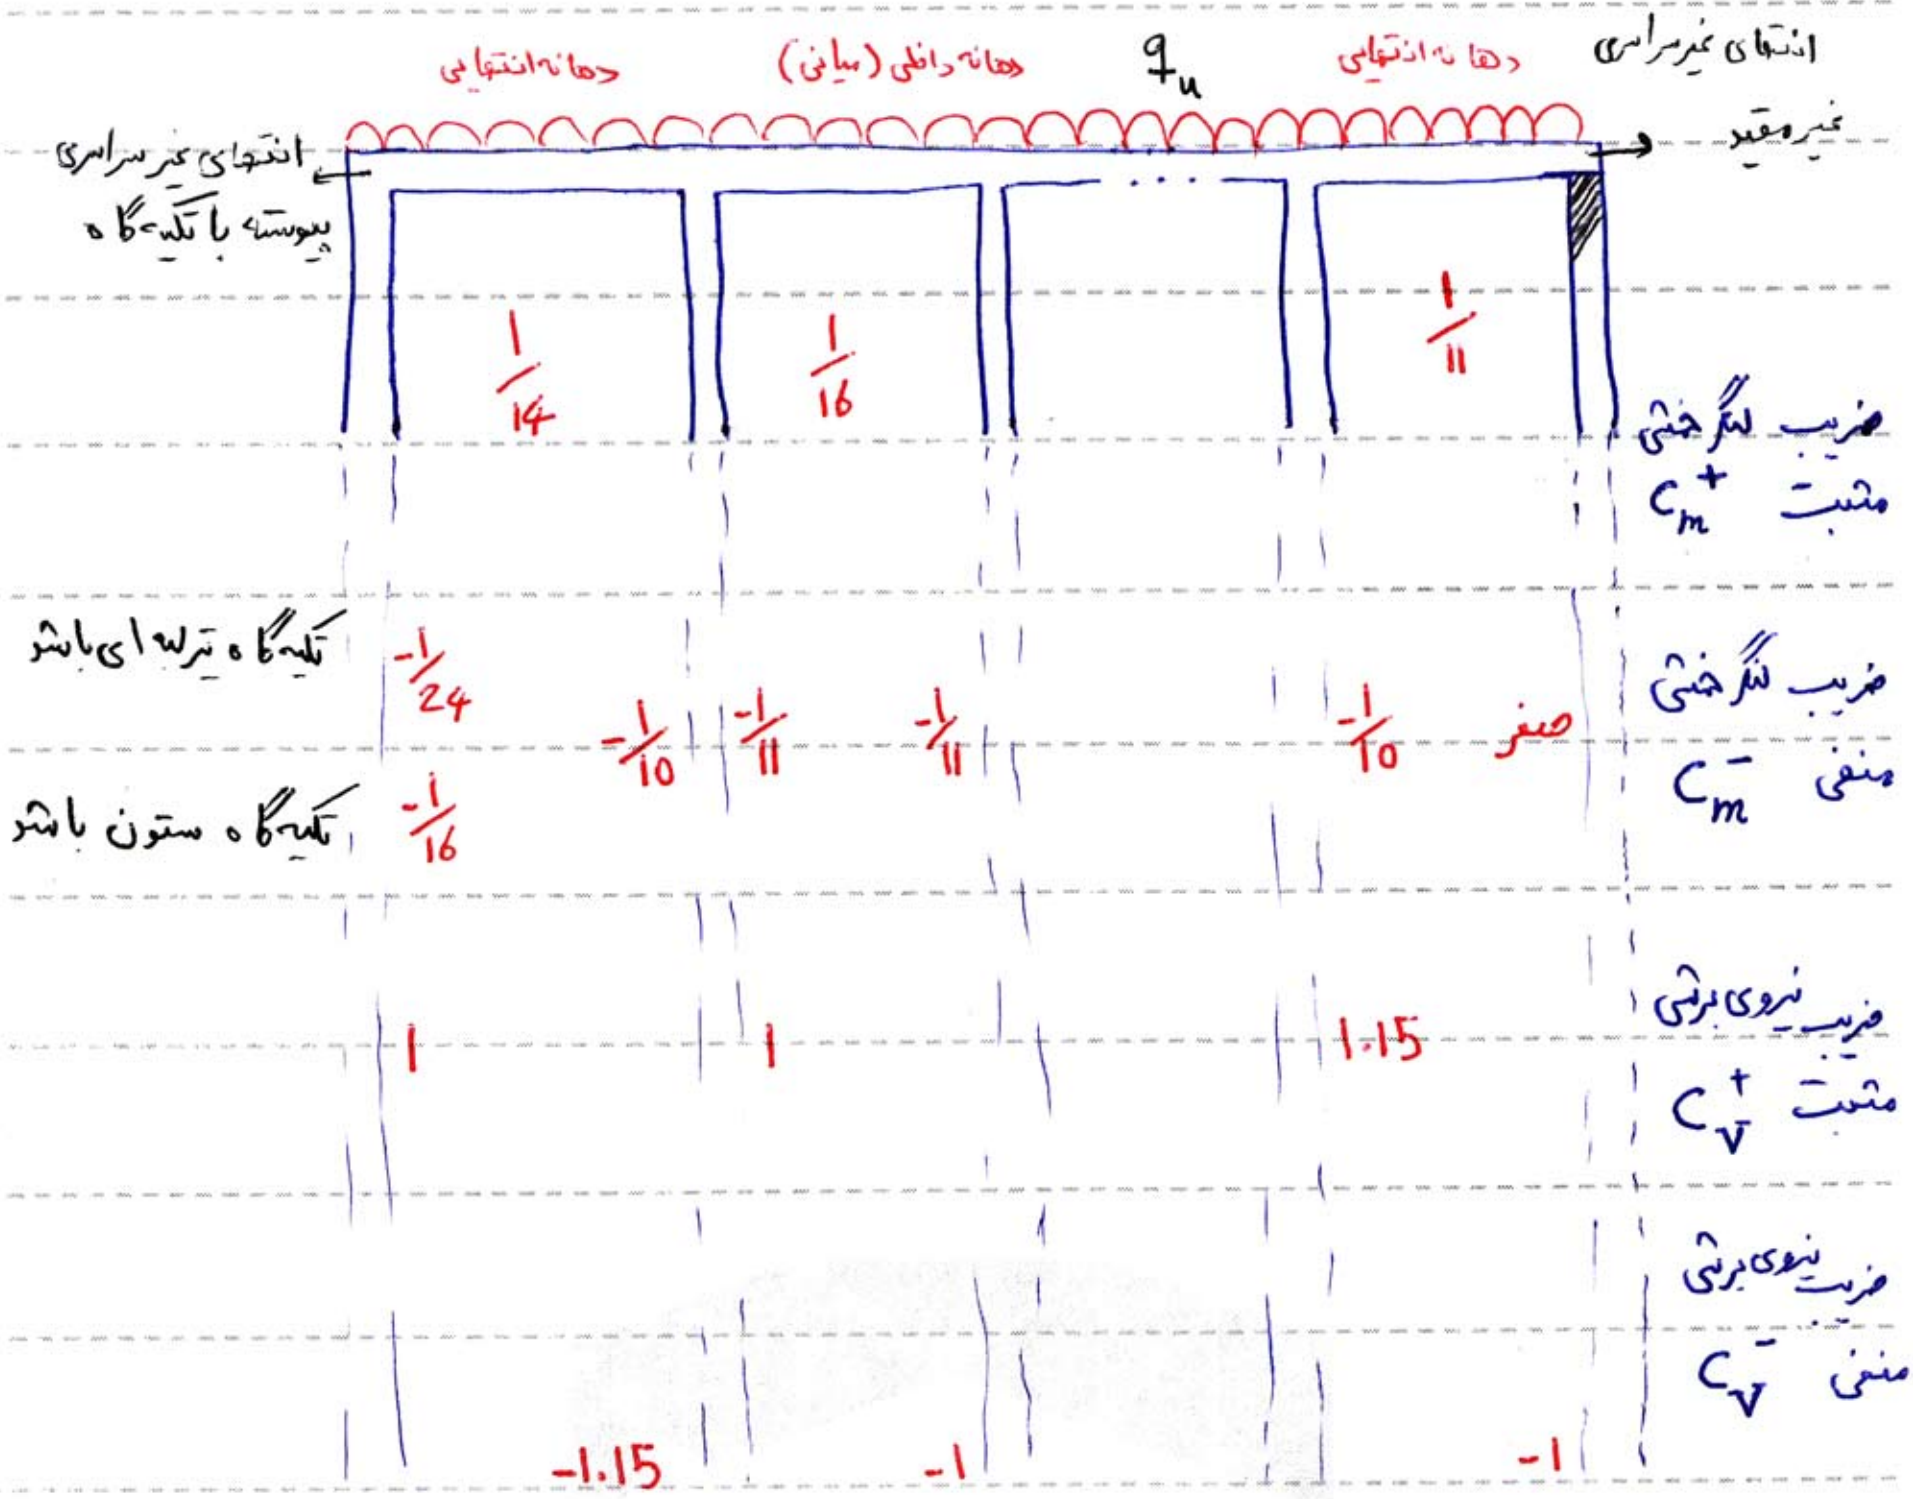 انتهای غیرسراسری
دهانه انتهایی
q_u
دهانه داخلی (میانی)
دهانه انتهایی
غیرمقید
انتهای غیرسراسری
پیوسته با تکیه‌گاه
1/14
1/16
...
1/11
ضریب لنگر خمشی
مثبت C_m^+
تکیه‌گاه تیر لبه‌ای باشد
-1/24
-1/10
-1/11
-1/11
-1/10
صفر
ضریب لنگر خمشی
منفی C_m^-
تکیه‌گاه ستون باشد
-1/16
ضریب نیروی برشی
1
1
1.15
مثبت C_V^+
ضریب نیروی برشی
منفی C_V^-
-1.15
-1
-1